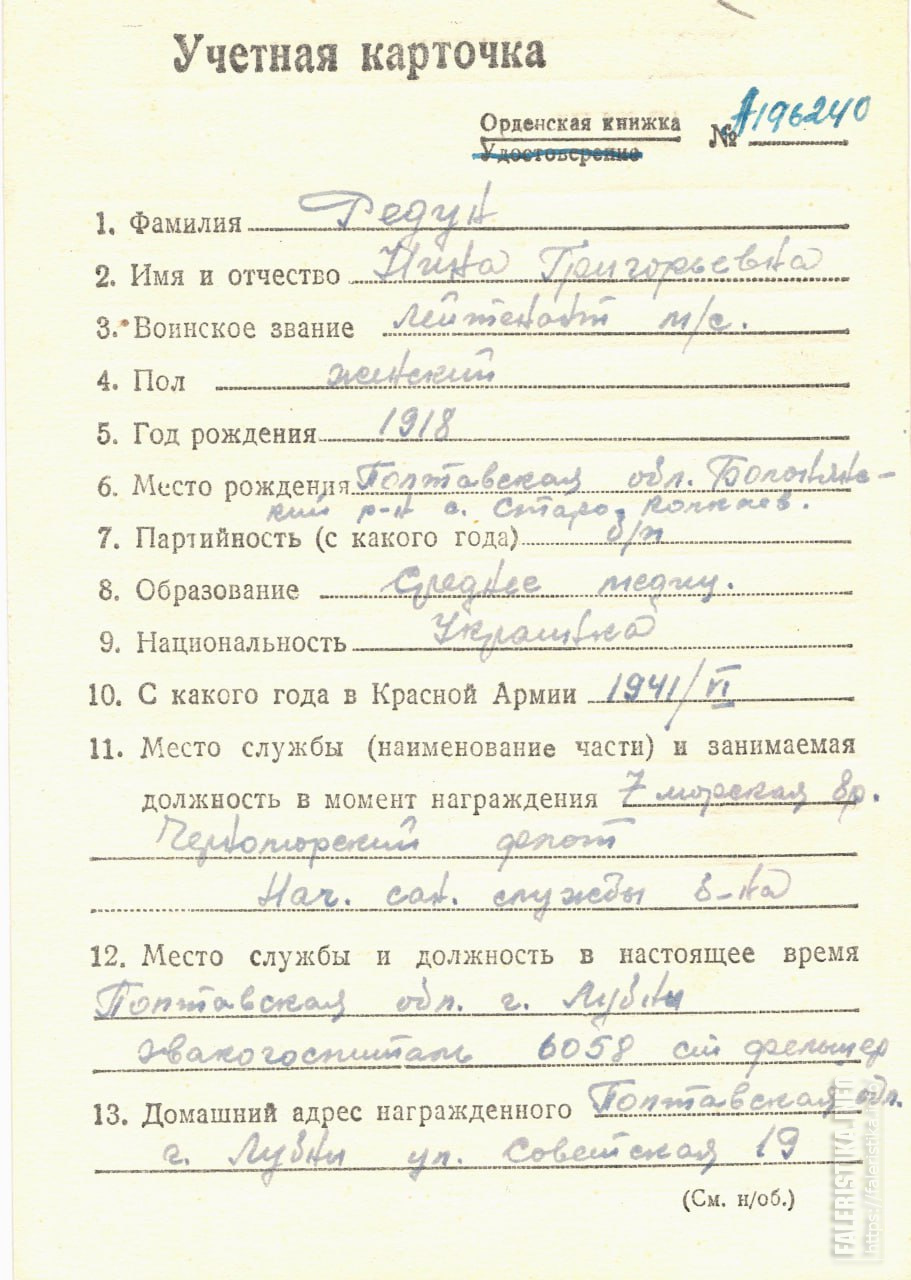 Учетная карточка
Орденская книжка № А196240
Удостоверение
1. Фамилия Редун
2. Имя и отчество Нина Григорьевна
3. Воинское звание лейтенант м/с.
4. Пол женский
5. Год рождения 1918
6. Место рождения Полтавская обл.
кий р-н с. Старо
7. Партийность (с какого года) б/п
8. Образование Среднее медиц.
9. Национальность Украинка
10. С какого года в Красной Армии 1941/VI
11. Место службы (наименование части) и занимаемая
должность в момент награждения 7 морская бр.
Черноморский флот
Нач. сан. службы б-на
12. Место службы и должность в настоящее время
Полтавская обл. г. Лубны
Эвакогоспиталь 6058 ст фельшер
13. Домашний адрес награжденного Полтавская обл.
г. Лубны ул. Советская 19
(См. н/об.)
FALERISTIKA.INFO
https://faleristika.info